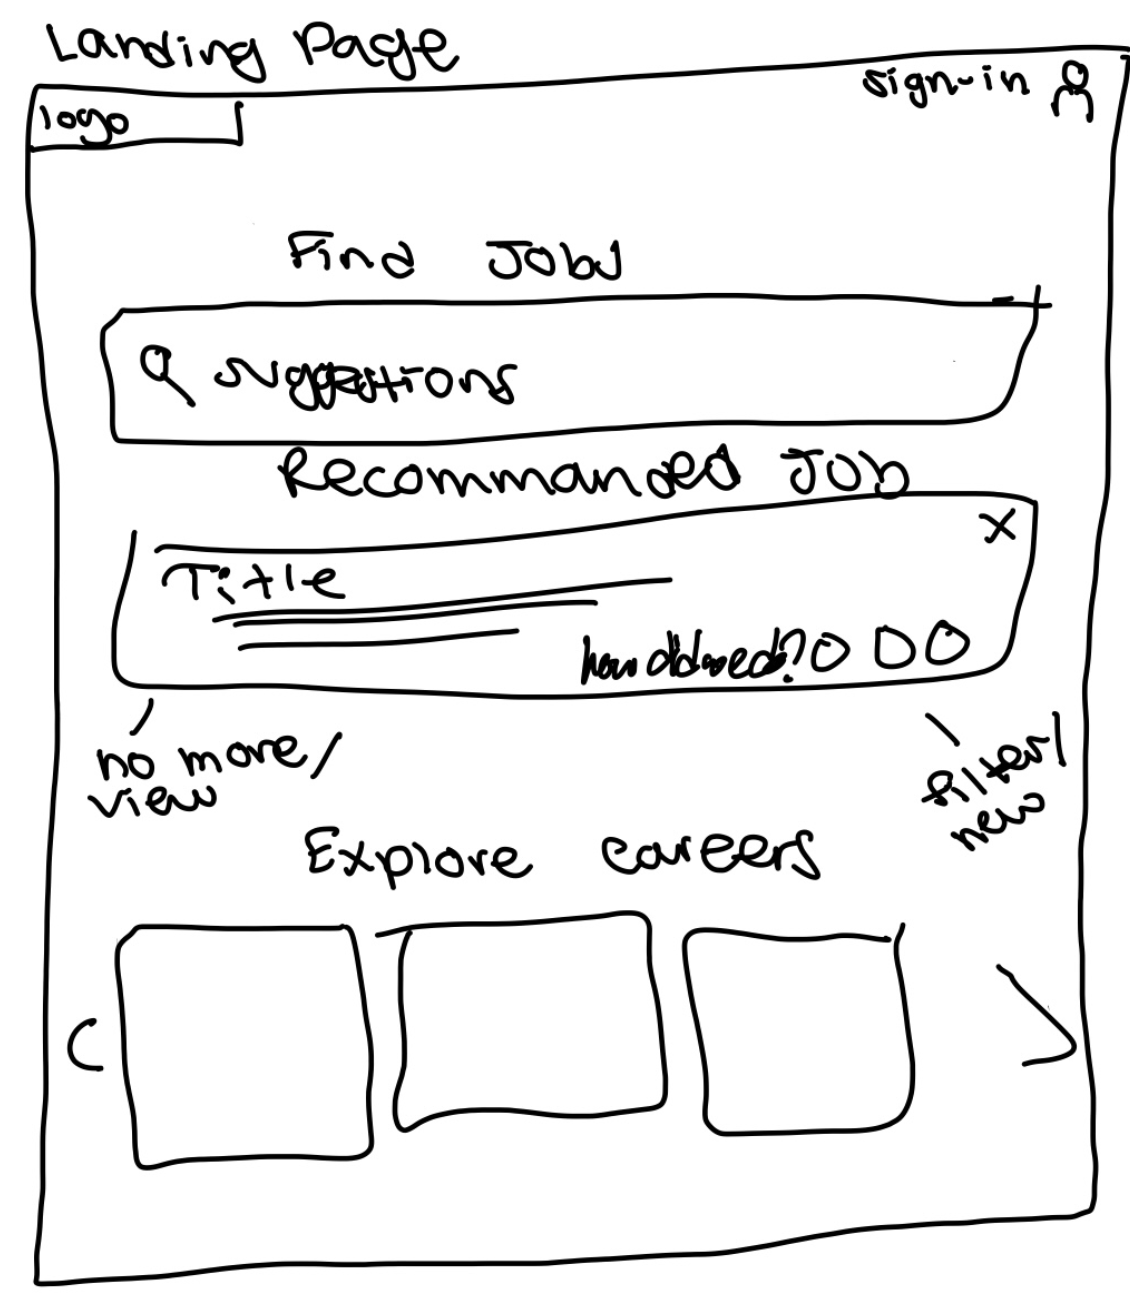 Landing Page
sign-in
logo
Find Jobs
suggestions
Recommanded Job
X
Title
no more/
view
filter/
new
Explore careers